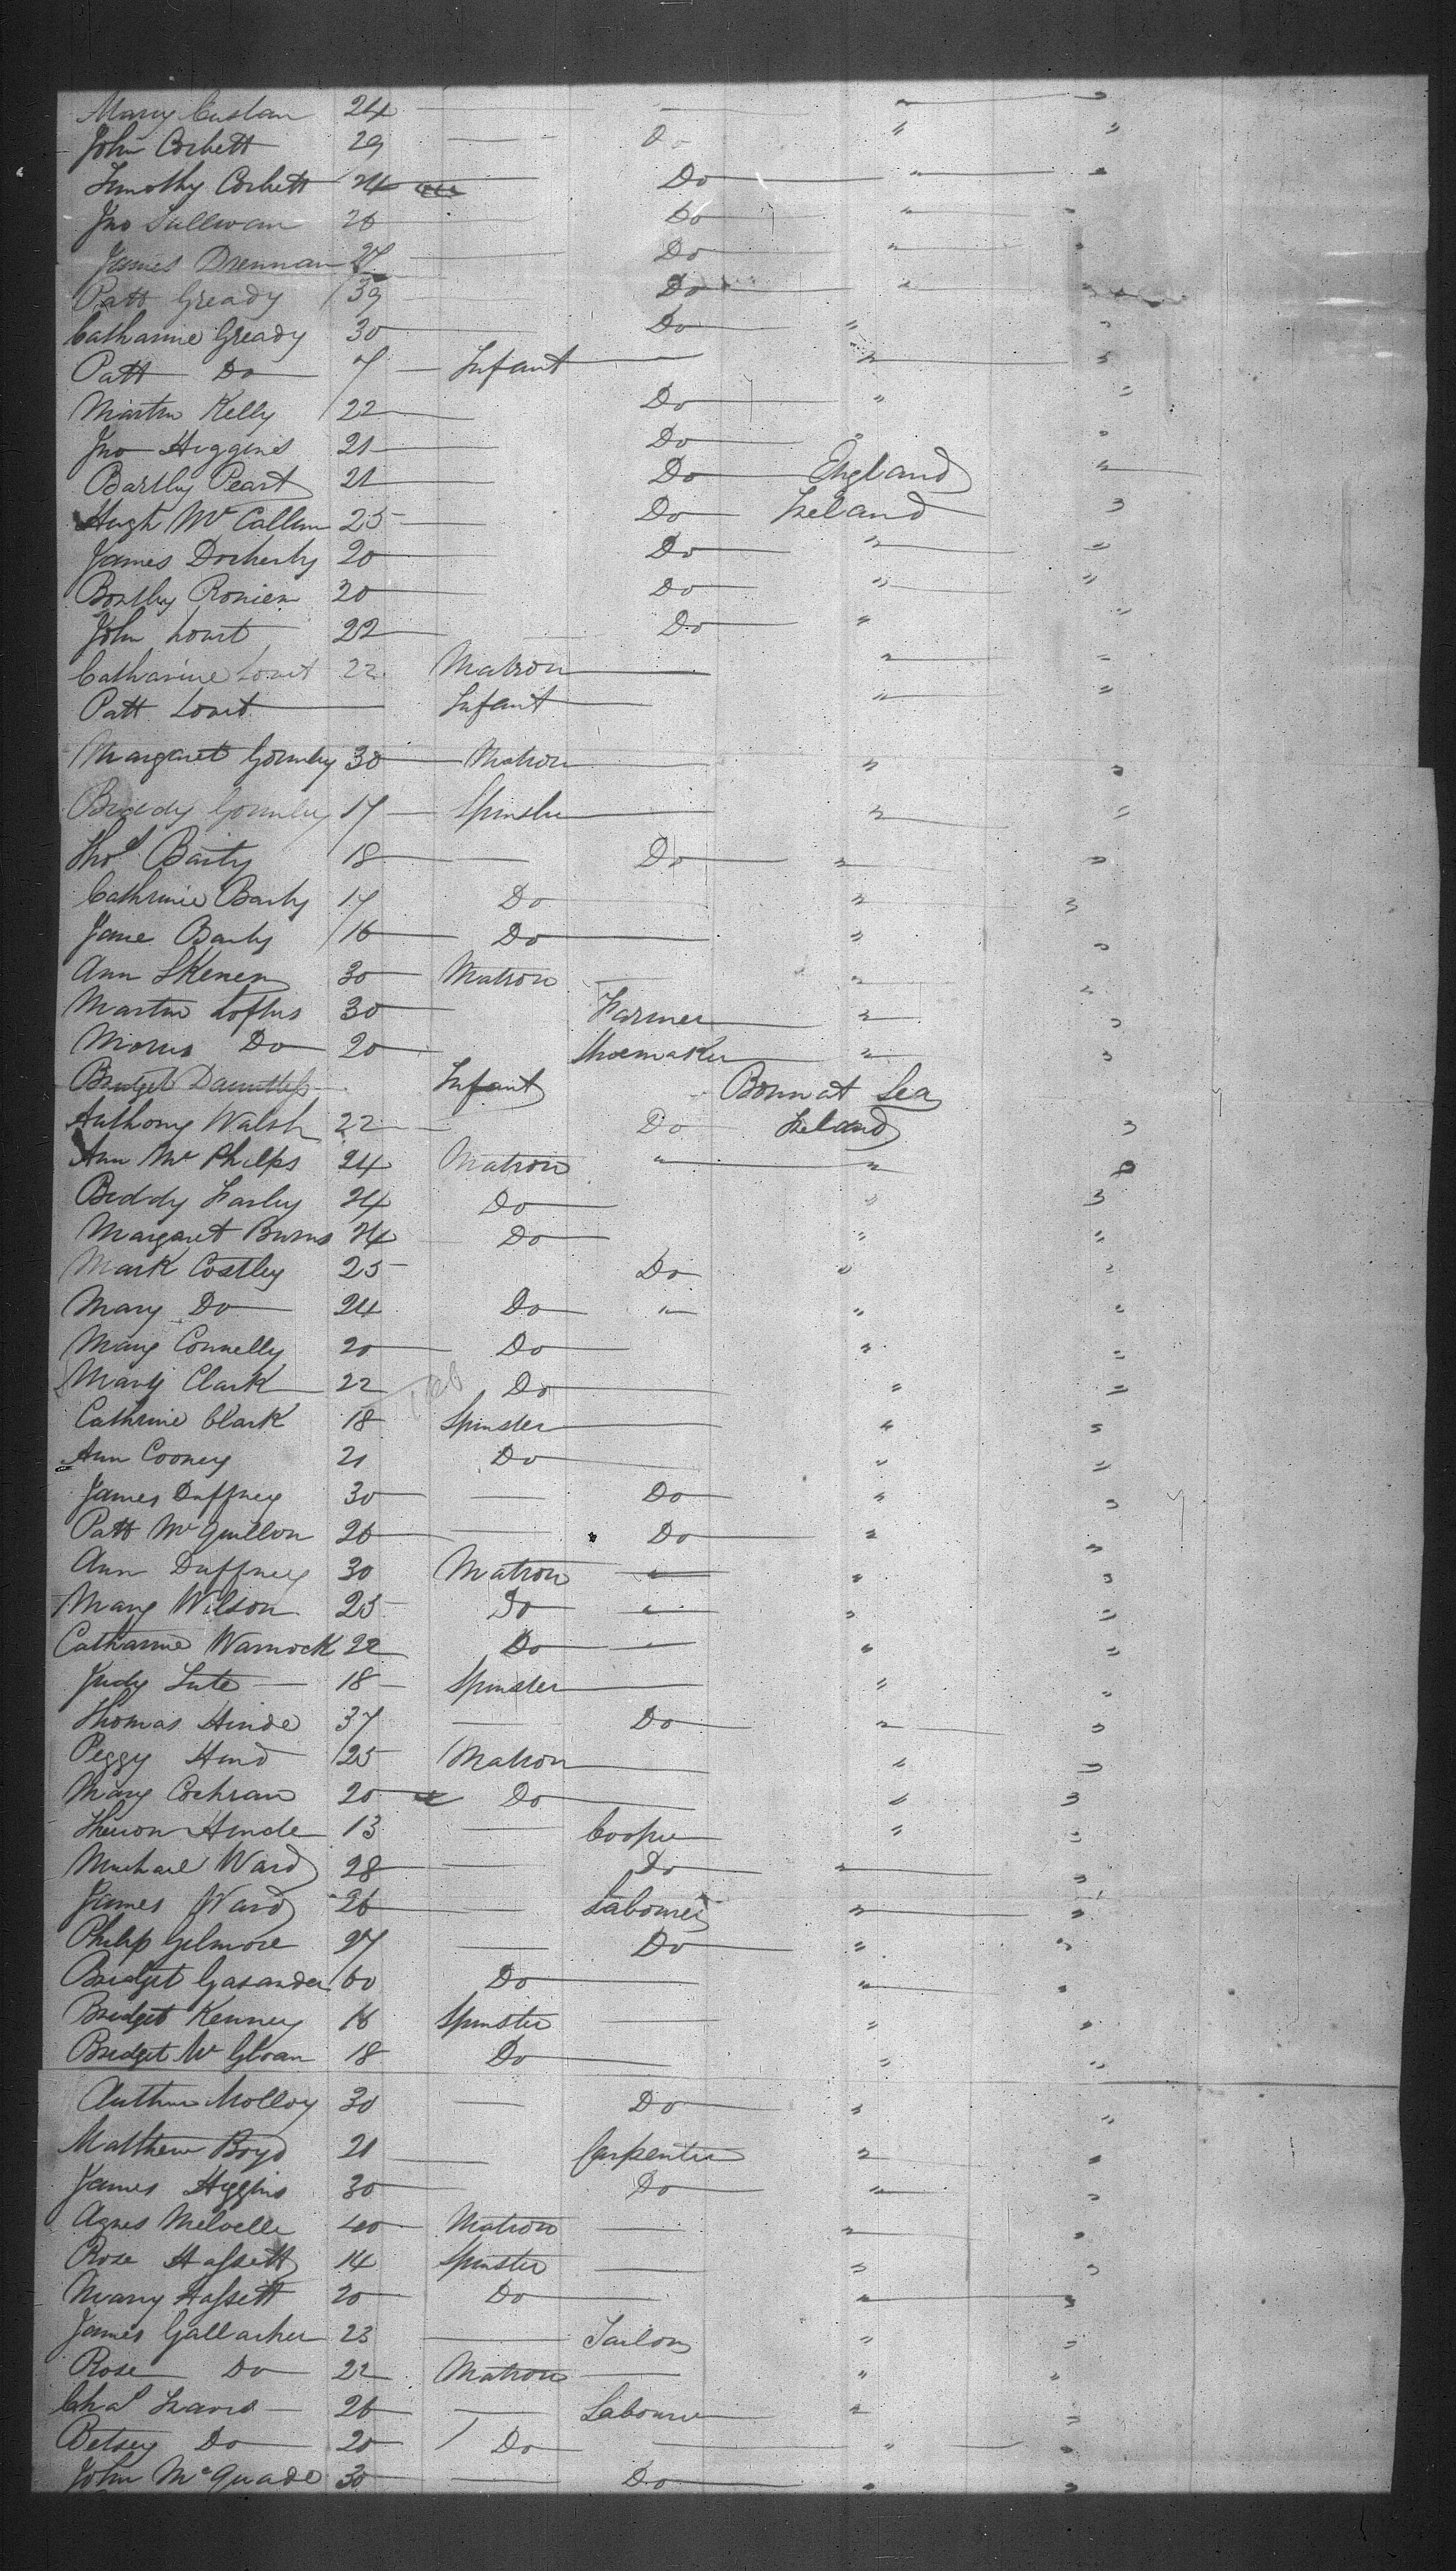 Mary Cuslan 24 — — " — "
John Corbett 29 — — Do " "
Timothy Corbett 24 — Do — " — "
Jno Sullivan 26 — Do — " — "
James Drennan 27 — Do — " — "
Patt Gready 39 — Do — " — "
Catharine Gready 30 — Do — " "
Patt Do — 7 — Infant — " — "
Martin Kelly 22 — Do — " "
Jno Higgins 21 — Do — " "
Bartly Peart 21 — Do — England " —
Hugh Mc Callum 25 — Do — Ireland — "
James Docherty 20 — Do — " — "
Bortley Ronien 20 — Do — " — "
John Lovet 22 — Do — " "
Catharine Lovet 22 Matron — " — "
Patt Lovet — Infant — " — "
Margaret Gormley 30 — Matron — " "
Briddy Gormley 17 — Spinster — " — "
Thos Barty 18 — — Do — " — "
Cathrine Barty 17 Do " — "
Jane Barty 16 — Do — " "
Ann Skenen 30 — Matron — " — "
Martin Loftus 30 — Farmer — " — "
Morris Do — 20 — Shoemaker — " — "
Bridget — Infant Born at Sea
Anthony Walsh 22 — Do Ireland "
Ann Mc Philps 24 Matron " — " "
Biddy Farley 24 Do — " "
Margaret Burns 24 Do — " "
Mark Costley 25 Do " "
Mary Do — 24 Do — " — " "
Mary Connelly 20 — Do — " "
Mary Clark 22 Do — " "
Cathrine Clark 18 Spinster — " "
Ann Cooney 21 Do — " "
James Duffney 30 — — Do — " "
Patt Mc Quillon 26 — — Do — " "
Ann Duffney 30 Matron — " — " "
Mary Wilson 25 Do — " — " "
Catharine Warnock 22 Do — " — " "
Judy Lute — 18 — Spinster — " "
Thomas Hinde 37 — Do — " — "
Peggy Hind 25 Matron — " "
Mary Cochran 20 — Do — " "
Hinde 13 — Cooper — " "
Michael Ward 28 — — Do — " — "
James Ward 26 — — Labourer " — "
Philip Gilmore 27 — Do — " "
Bridget Gasander 60 Do — " — "
Bridget Kenney 16 Spinster — " "
Bridget Mc Gloan 18 Do — " "
Arthur Molloy 30 — Do — " "
Matthew Boyd 21 — Carpenter " "
James Higgins 30 — Do — " — "
Agnes Melvelle 40 — Matron — " — "
Rose Hassett 14 Spinster — " "
Mary Hassett 20 — Do — " — "
James Gallacher 23 — Tailor " "
Rose Do — 22 Matron — " "
Chas — 26 — — Labourer — " "
Betsey Do — 20 Do — — " — "
John McQuade 30 — — Do — " "